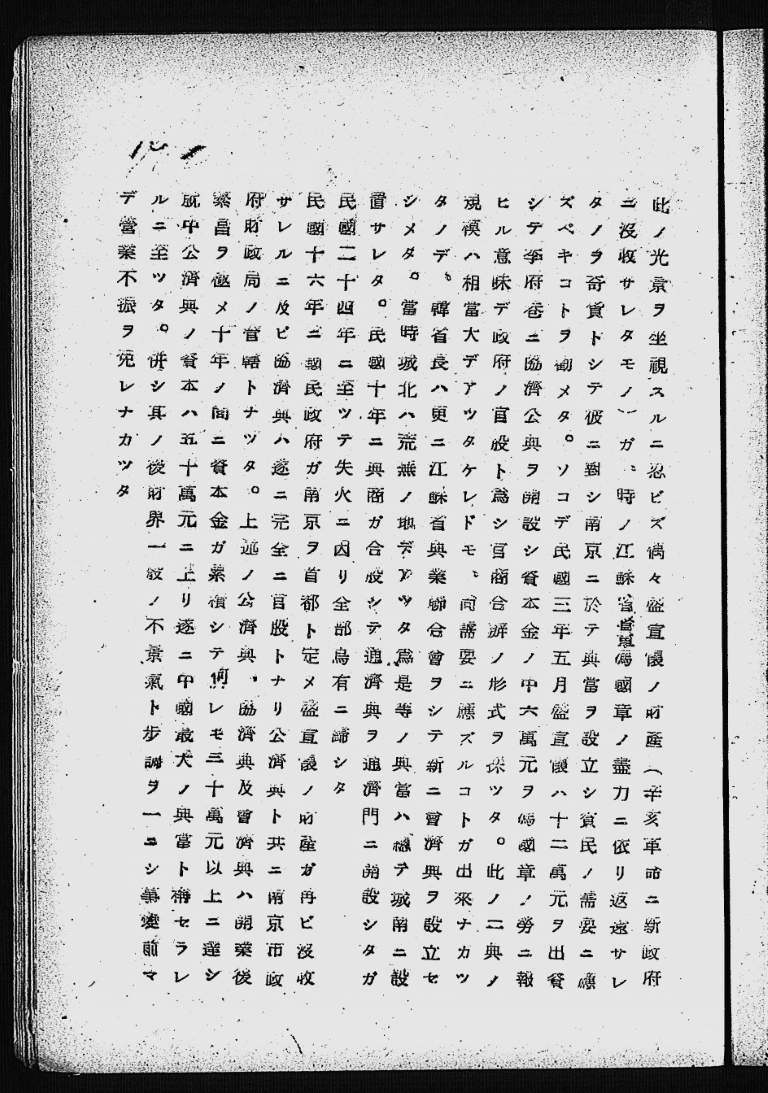 此ノ光景ヲ坐視スルニ忍ビズ偶々盛宣懷ノ財產(辛亥革命ニ新政府
ニ沒收サレタモノ)ガ、時ノ江蘇省省長馮國章ノ盡力ニ依リ返還サレ
タノヲ奇貨トシテ彼ニ對シ南京ニ於テ典當ヲ設立シ貧民ノ需要ニ應
ズベキコトヲ勸メタ。ソコデ民國三年五月盛宣懷ハ十二萬元ヲ出資
シテ李府巷ニ協濟公典ヲ開設シ資本金ノ中六萬元ヲ馮國章ノ勞ニ報
ヒル意味デ政府ノ官股ト爲シ官商合辦ノ形式ヲ採ツタ。此ノ二典ノ
規模ハ相當大デアツタケレドモ、尙需要ニ應ズルコトガ出來ナカツ
タノデ、韓省長ハ更ニ江蘇省典業聯合會ヲシテ新ニ曾濟典ヲ設立セ
シメタ。當時城北ハ荒蕪ノ地デアツタ爲是等ノ典當ハ總テ城南ニ設
置サレタ。民國十年ニ典商ガ合股シテ通濟典ヲ通濟門ニ開設シタガ
民國二十四年ニ至ツテ失火ニ因リ全部烏有ニ歸シタ
民國十六年ニ國民政府ガ南京ヲ首都ト定メ盛宣懷ノ財產ガ再ビ沒收
サレルニ及ビ協濟典ハ遂ニ完全ニ官股トナリ公濟典ト共ニ南京市政
府財政局ノ管轄トナツタ。上述ノ公濟典、協濟典及曾濟典ハ開業後
繁昌ヲ極メ十年ノ間ニ資本金ガ累積シテ何レモ三十萬元以上ニ達シ
就中公濟典ノ資本ハ五十萬元ニ上リ遂ニ中國最大ノ典當ト稱セラレ
ルニ至ツタ。併シ其ノ後財界一般ノ不景氣ト步調ヲ一ニシ事變前マ
デ營業不振ヲ免レナカツタ